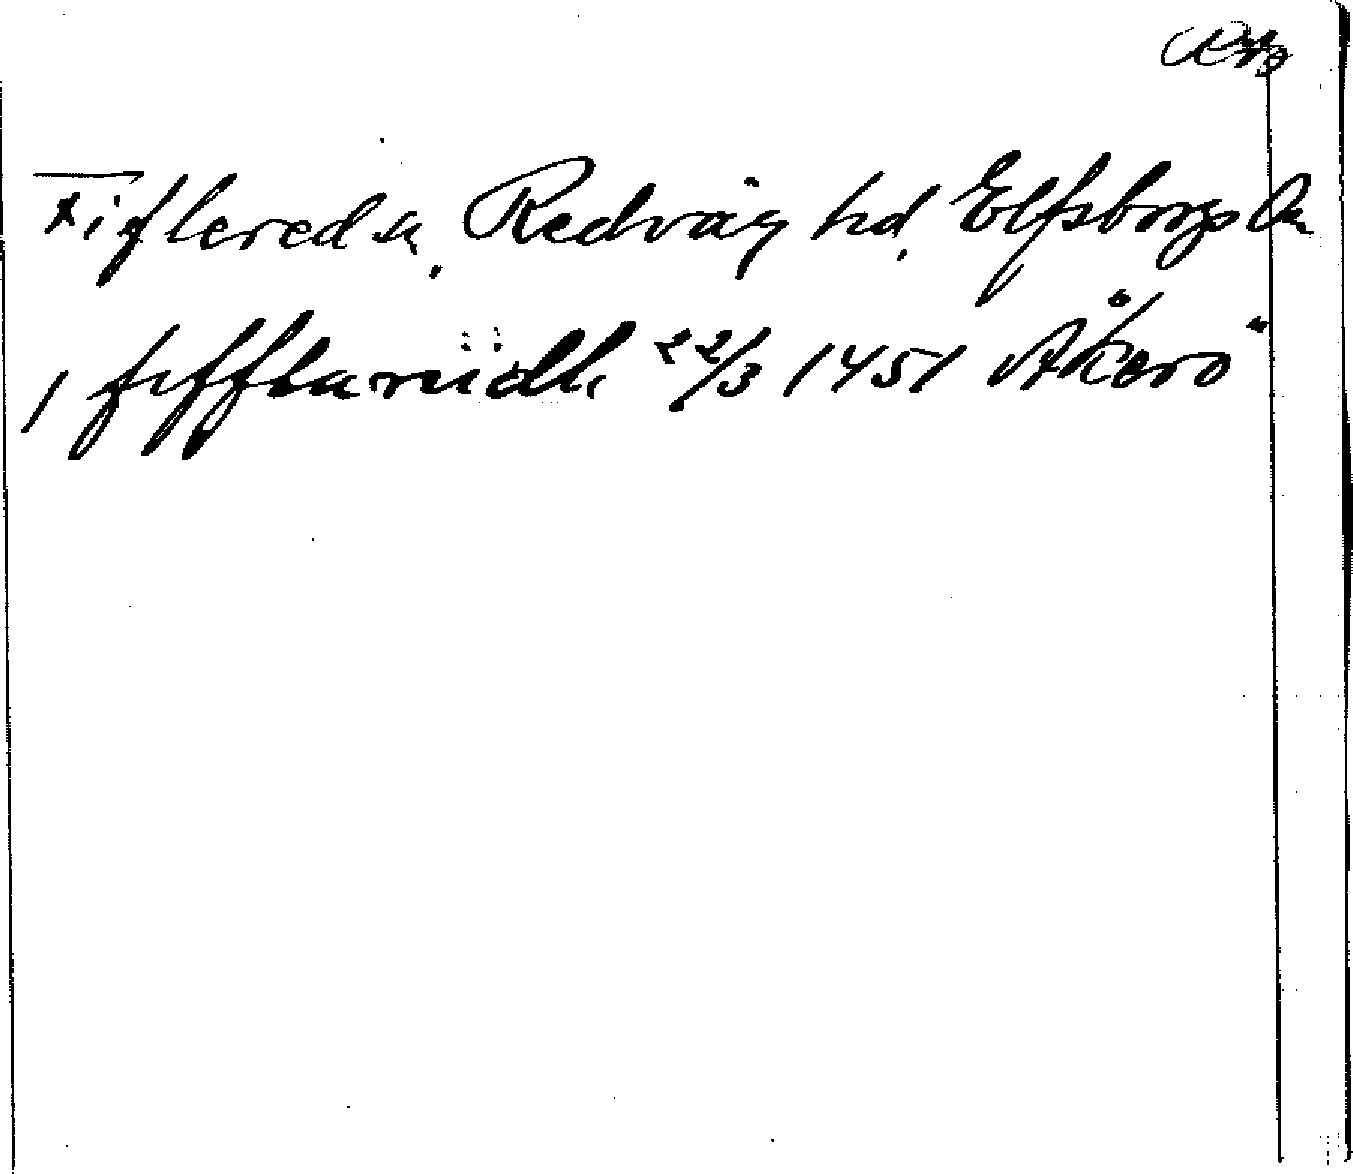 Fiflered sn, Redväg hd, Elfsborgs län
j fifflarudh 22/3 1451 Åkerö